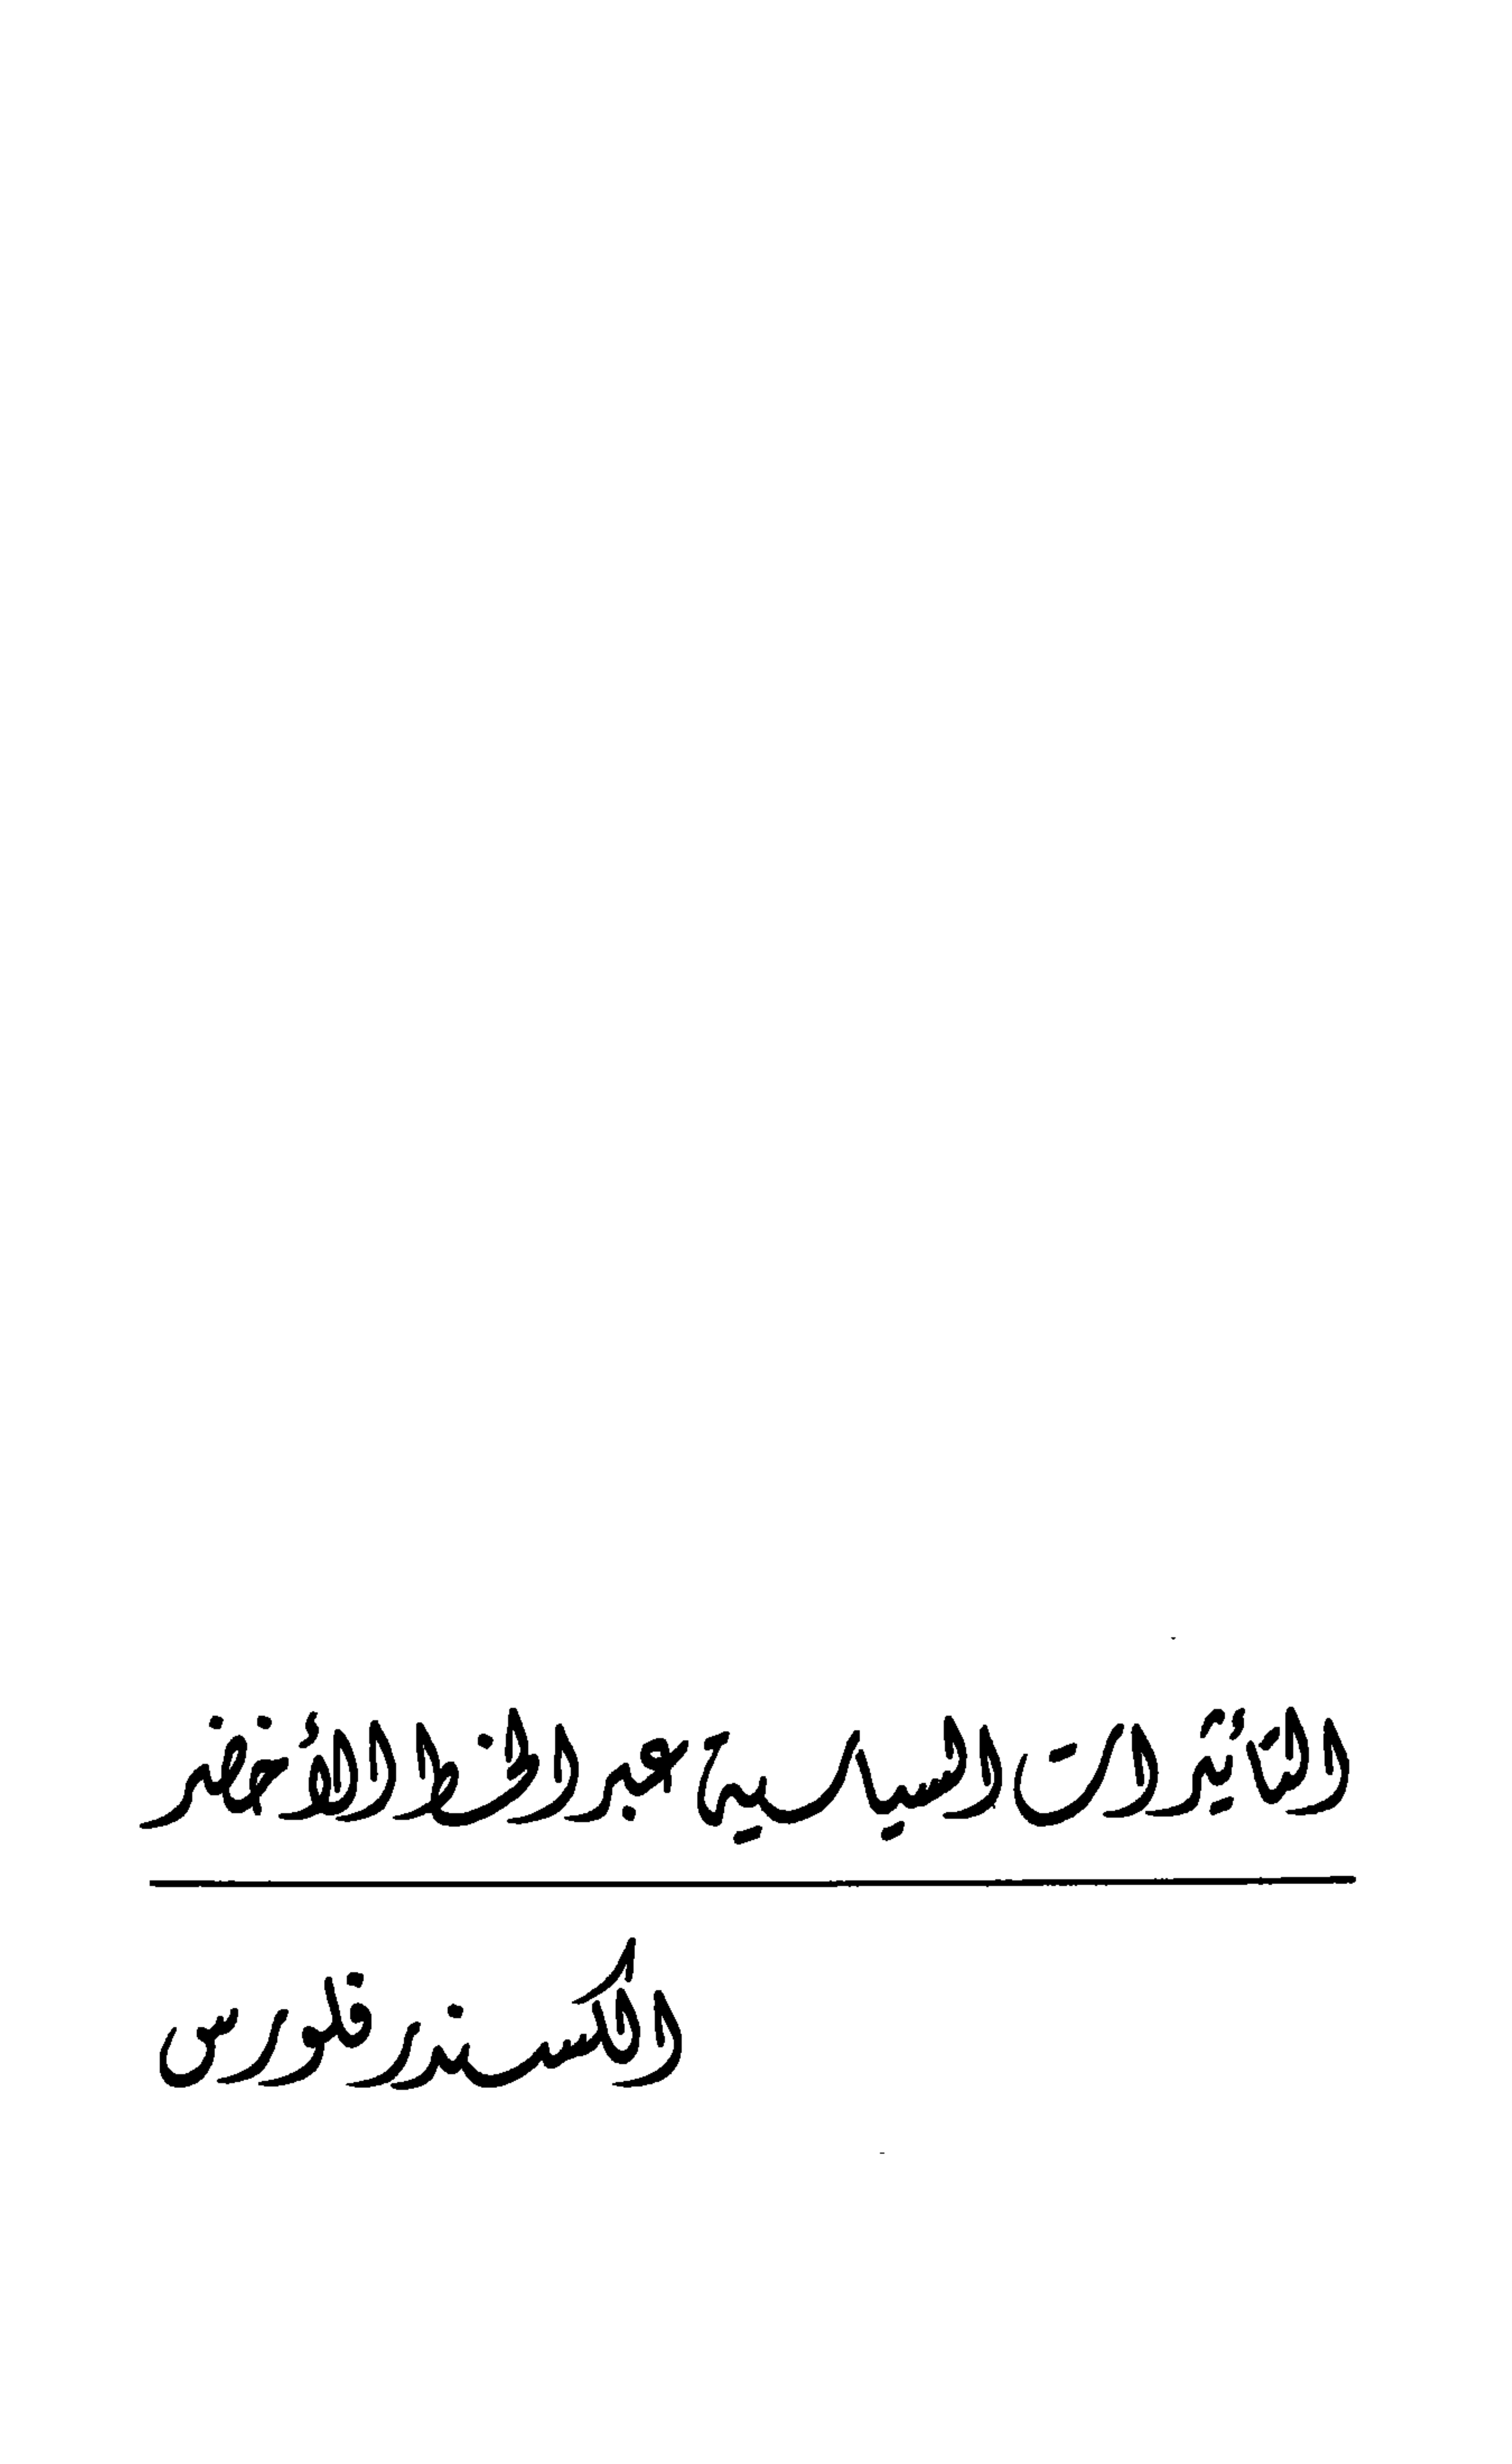 التأثيرات السياسية عبر الخط الأخضر
الكسندر فلورس